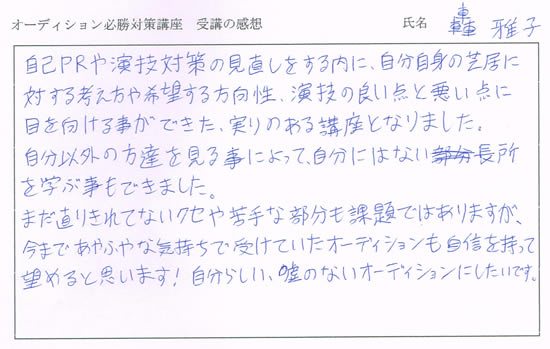 オーディション必勝対策講座　受講の感想　氏名　轟　雅子
自己PRや演技対策の見直しをする内に、自分自身の芝居に
対する考え方や希望する方向性、演技の良い点と悪い点に
目を向ける事ができた、実りのある講座となりました。
自分以外の方達を見る事によって、自分にはない部分長所
を学ぶ事もできました。
まだ直りきれてないクセや苦手な部分も課題ではありますが、
今まであやふやな気持ちで受けていたオーディションも自信を持って
望めると思います！自分らしい、嘘のないオーディションにしたいです。